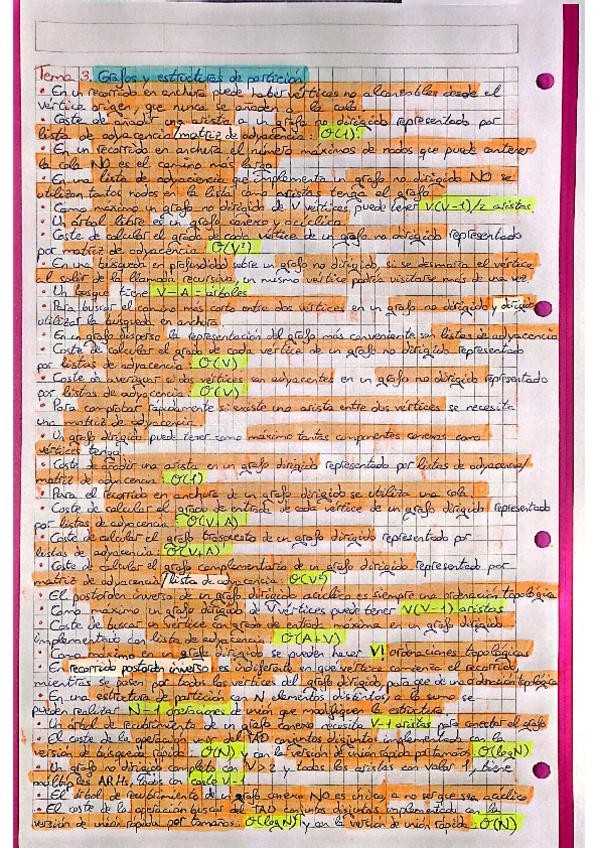 Tema 3. Grafos y estructuras de partición
• En un recorrido en anchura puede haber vértices no alcanzables desde el
vértice origen, que nunca se añaden a la cola.
• Coste de añadir una arista a un grafo no dirigido representado por
listas de adyacencia/matriz de adyacencia: O(1).
• En un recorrido en anchura el número máximos de nodos que puede contener
la cola NO es el camino más largo.
• En una lista de adyacencia que implementa un grafo no dirigido NO se
utilizan tantos nodos en la lista como aristas tenga el grafo.
• Como máximo un grafo no dirigido de V vértices puede tener V(V-1)/2 aristas.
• Un árbol libre es un grafo conexo y acíclico.
• Coste de calcular el grado de cada vértice de un grafo no dirigido representado
por matriz de adyacencia: O(V²)
• En una búsqueda en profundidad sobre un grafo no dirigido, si se desmarca el vértice
al salir de la llamada recursiva, un mismo vértice podría visitarse más de una vez.
• Un bosque tiene V-A = árboles.
• Para buscar el camino más corto entre dos vértices en un grafo no dirigido y dirigido
utilizar la búsqueda en anchura.
• En un grafo disperso la representación del grafo más conveniente son listas de adyacencia
• Coste de calcular el grado de cada vértice de un grafo no dirigido representado
por listas de adyacencia: O(V)
• Coste de averiguar si dos vértices son adyacentes en un grafo no dirigido representado
por listas de adyacencia: O(V)
• Para comprobar rápidamente si existe una arista entre dos vértices se necesita
una matriz de adyacencia.
• Un grafo dirigido puede tener como máximo tantas componentes conexas como
vértices tenga.
• Coste de añadir una arista en un grafo dirigido representado por listas de adyacencia/
matriz de adyacencia: O(1)
• Para el recorrido en anchura de un grafo dirigido se utiliza una cola.
• Coste de calcular el grado de entrada de cada vértice de un grafo dirigido representado
por listas de adyacencia: O(V+A)
• Coste de calcular el grafo traspuesto de un grafo dirigido representado por
listas de adyacencia: O(V+A)
• Coste de calcular el grafo complementario de un grafo dirigido representado por
matriz de adyacencia/lista de adyacencia: O(V²)
• El postorden inverso de un grafo dirigido acíclico es siempre una ordenación topológica
• Como máximo un grafo dirigido de V vértices puede tener V(V-1) aristas
• Coste de buscar un vértice con grado de entrada máximo en un grafo dirigido
implementado con lista de adyacencia: O(A+V)
• Como máximo en un grafo dirigido se pueden hacer V! ordenaciones topológicas
• En recorrido postorden inverso es indiferente en que vértice comienza el recorrido,
mientras se pasen por todos los vértices del grafo dirigido, para que de una ordenación topológica
• En una estructura de partición con N elementos distintos, a lo sumo se
pueden realizar N-1 operaciones de unión que modifiquen la estructura.
• Un árbol de recubrimiento de un grafo conexo necesita V-1 aristas para conectar el grafo
• El coste de la operación unir del TAD conjuntos disjuntos implementada con la
versión de búsqueda rápida: O(N) y con la versión de unión rápida por tamaños: O(logN)
• Un grafo no dirigido completo con V>2 y todas las aristas con valor 1, tiene
múltiples ARMs, todos con coste V-1
• El árbol de recubrimiento de un grafo conexo NO es único, a no ser que sea acíclico
• El coste de la operación buscar del TAD conjuntos disjuntos implementada con la
versión de unión rápida por tamaños: O(logN) y con la versión de unión rápida: O(N)